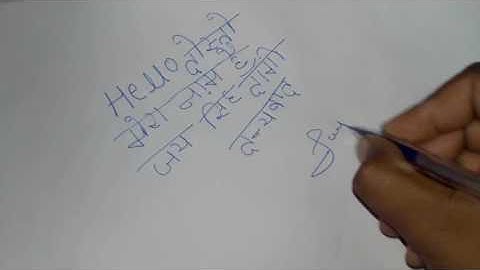 Hello दोस्तो
मेरा नाम है
जय सिंह
धन्यवाद